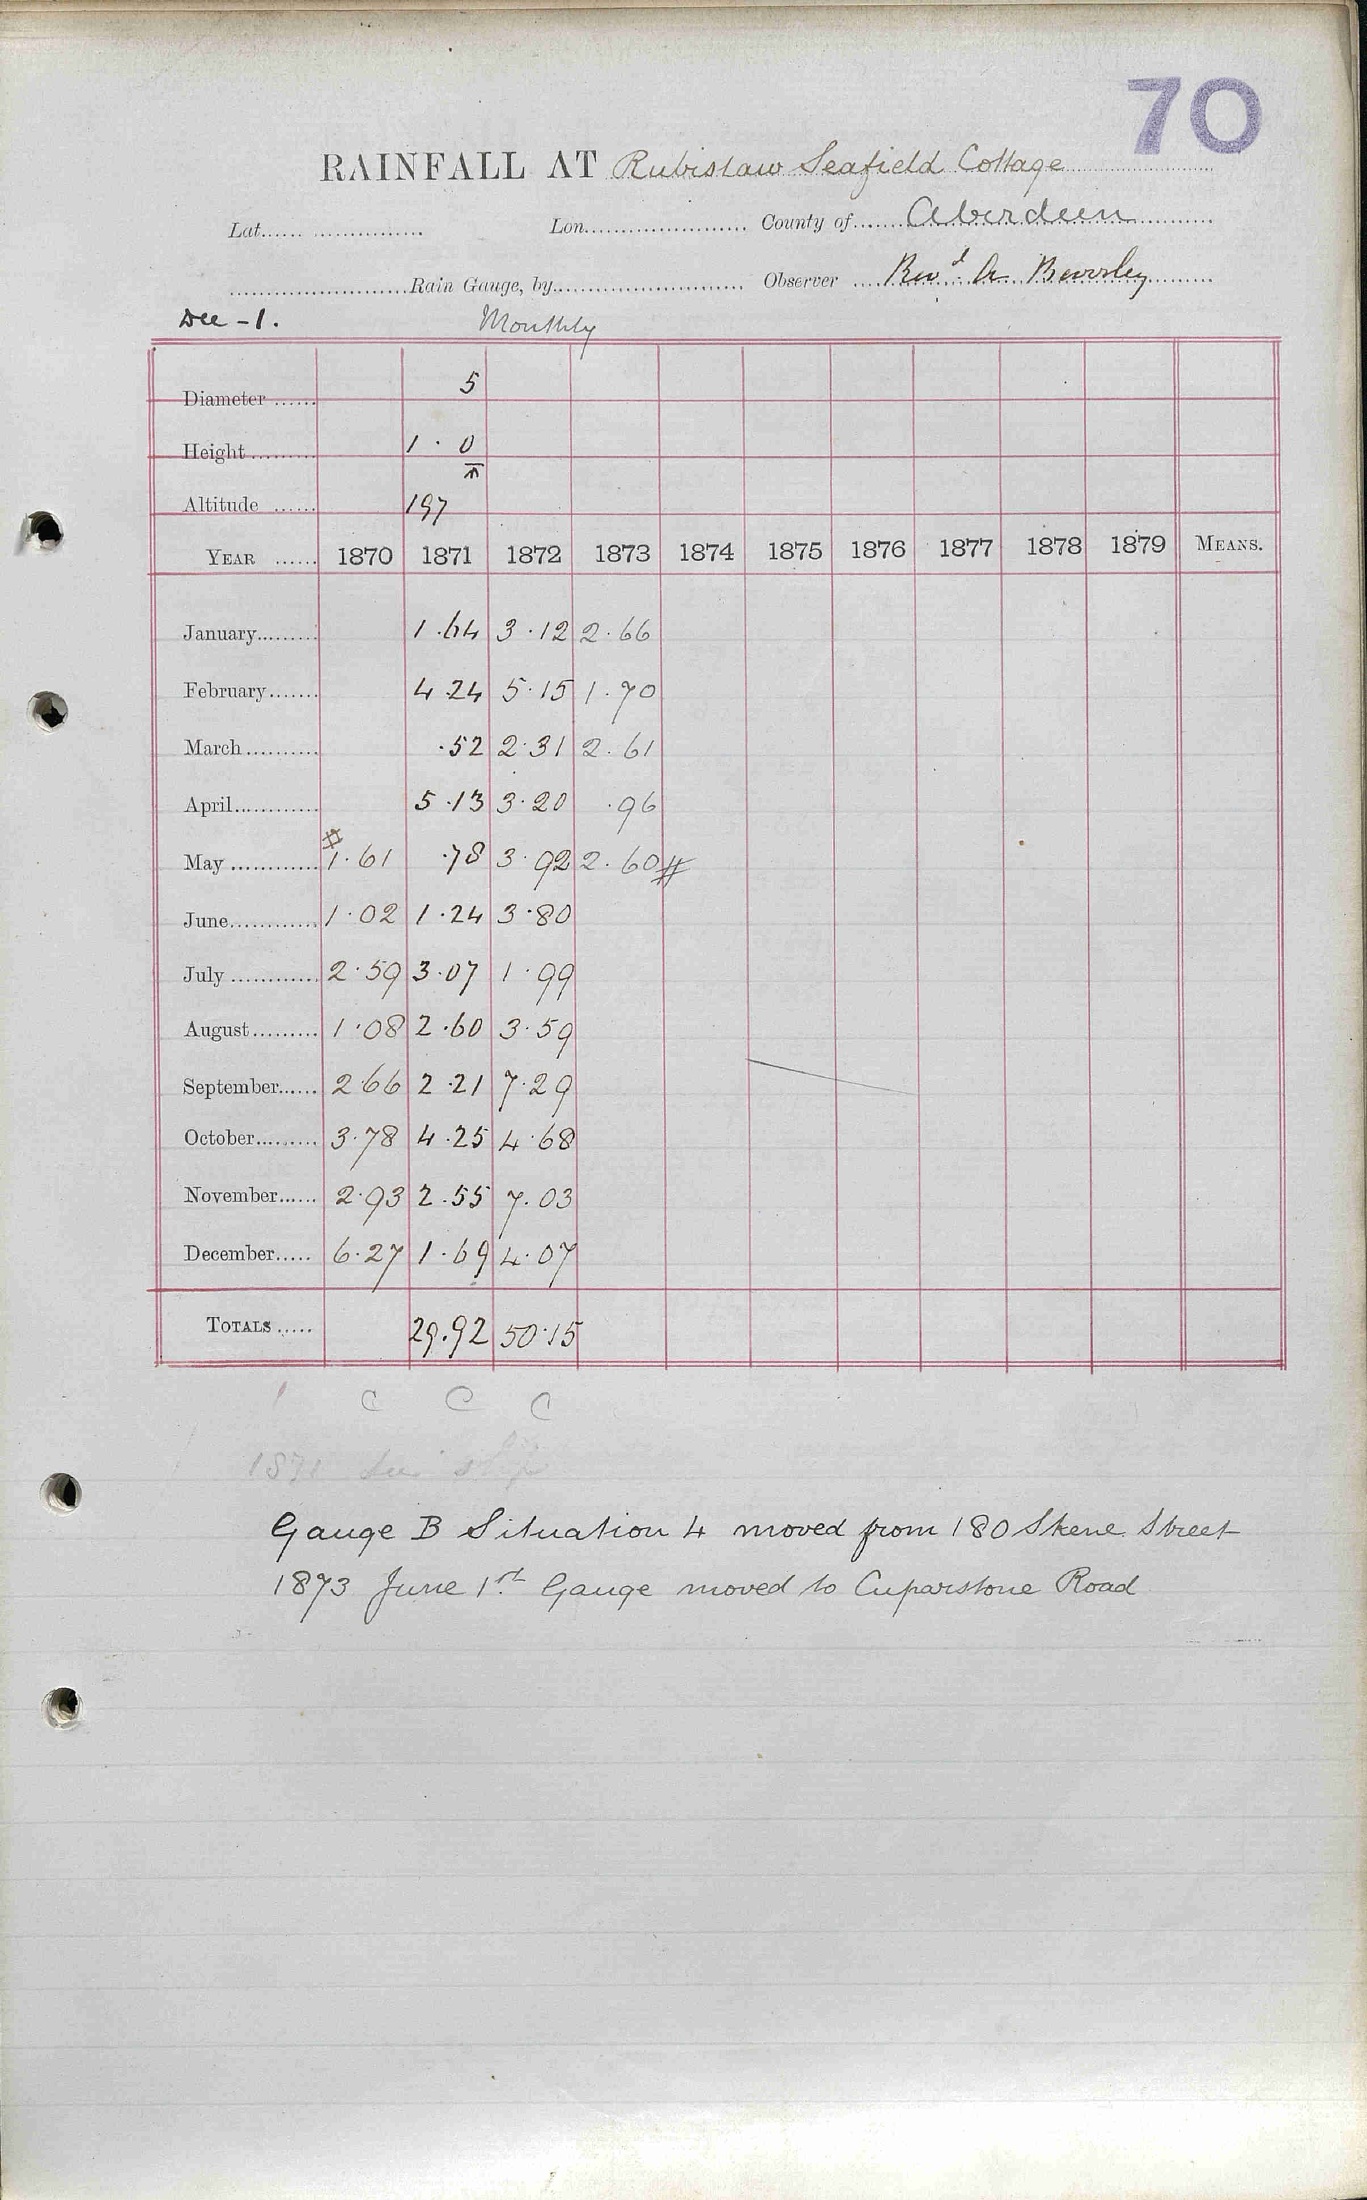 70
RAINFALL AT Rubislaw Seafield Cottage
Lat. Lon. County of Aberdeen
Rain Gauge, by Observer Revd. A Beverley
Dec - 1. Monthly
Diameter 5
Height 1 · 0
Altitude 197
YEAR 1870 1871 1872 1873 1874 1875 1876 1877 1878 1879 MEANS.
January 1·64 3·12 2·66
February 4·24 5·15 1·70
March ·52 2·31 2·61
April 5·13 3·20 ·96
May # 1·61 ·78 3·92 2·60 #
June 1·02 1·24 3·80
July 2·59 3·07 1·99
August 1·08 2·60 3·59
September 2 66 2·21 7·29
October 3·78 4·25 4·68
November 2·93 2·55 7·03
December 6·27 1·69 4·07
TOTALS 29.92 50·15
C C C
1871 See slip
Gauge B Situation 4 moved from 180 Skene Street
1873 June 1st Gauge moved to Cuparstone Road